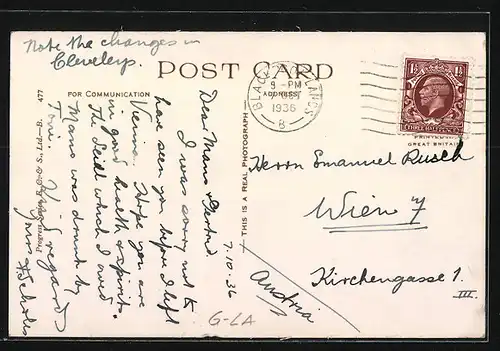 Note the changes in
Cleveleys.
POST CARD
FOR COMMUNICATION
ADDRESS
9 - PM
1936
B
1½ 1½
THREE HALFPENCE
GREAT BRITAIN
THIS IS A REAL PHOTOGRAPH
S., Ltd—B. 477
7.10.36
Dear Mans & Gertrud.
I was sorry not to
have seen you before I left
Vienna. Hope you are
in good health & spirits.
The Seidl which I owed
Mans was drunk by
Toni. Kind regards
Yours
Herrn Emanuel Rusch
Wien 7
Kirchengasse 1.
III.
Austria
G-LA